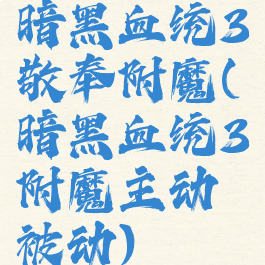 暗黑血统3
敬奉附魔(
暗黑血统3
附魔主动
被动)